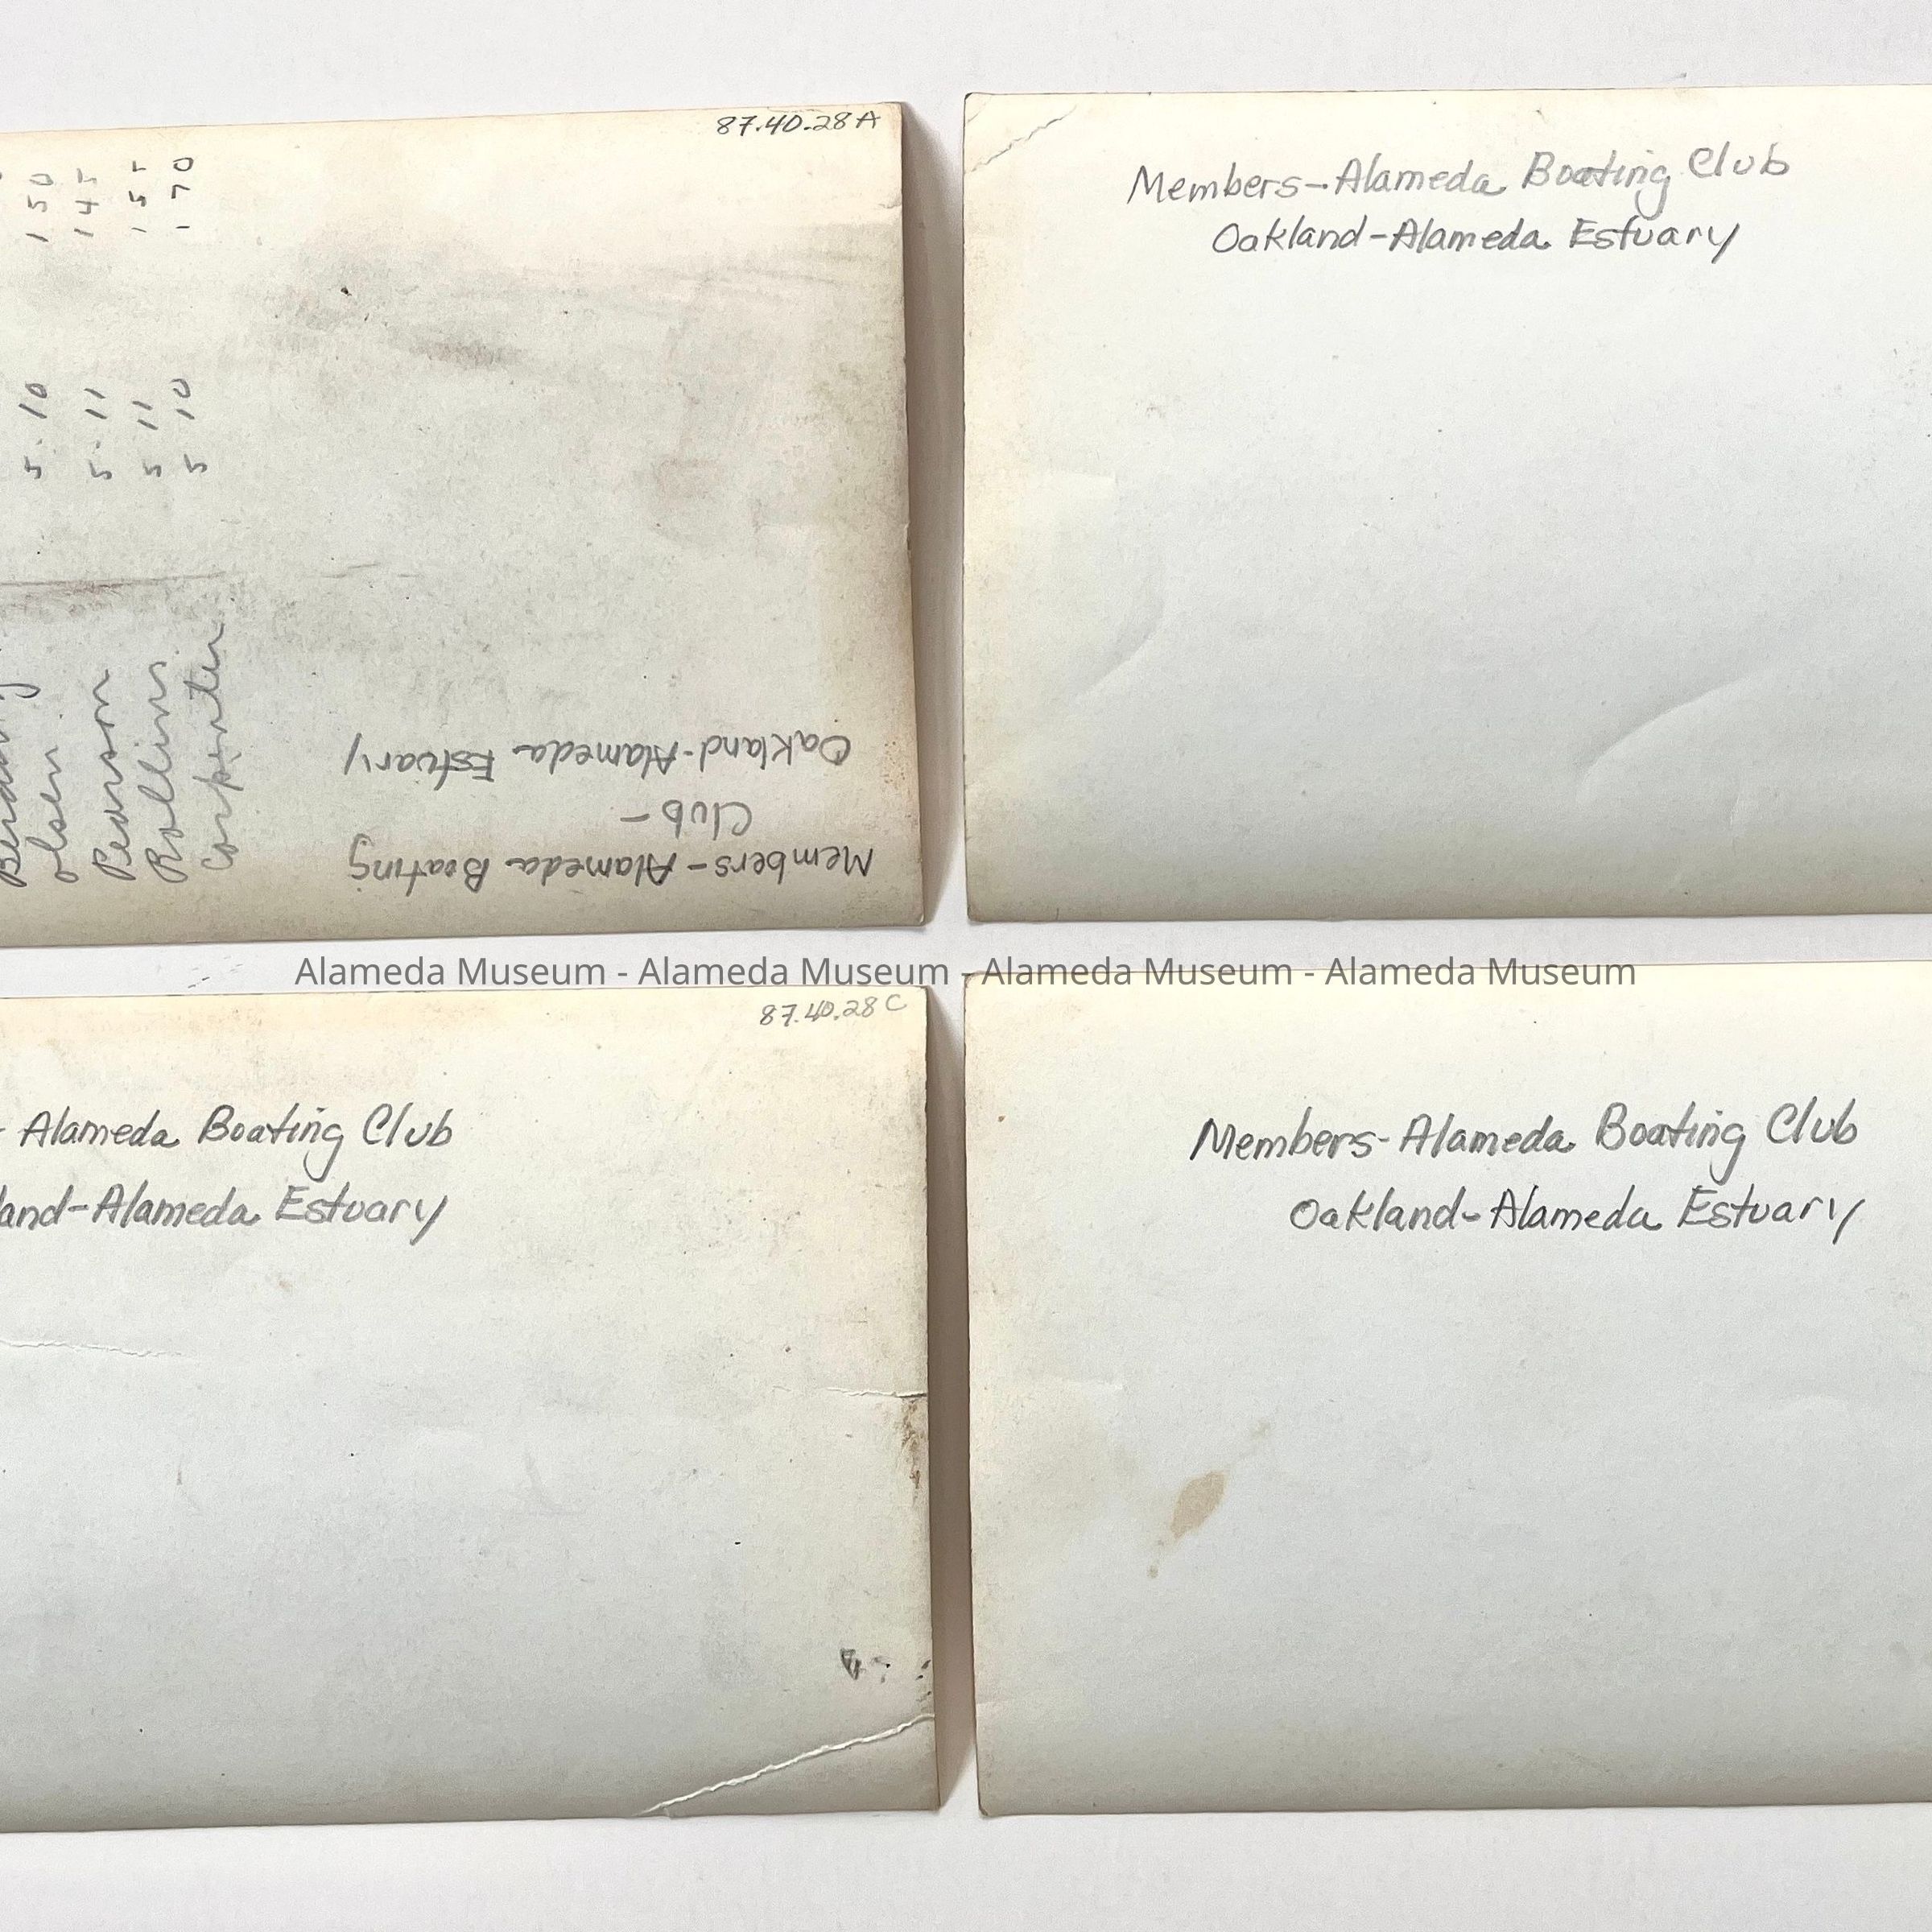 87.40.28A
150
145
155
170
5.10
5.11
5 11
5 10
Olsen
Pearson
Rollins
Carpenter
Members-Alameda Boating
Club-
Oakland-Alameda Estuary
Members-Alameda Boating Club
Oakland-Alameda Estuary
Alameda Museum - Alameda Museum - Alameda Museum - Alameda Museum
87.40.28C
- Alameda Boating Club
land-Alameda Estuary
Members-Alameda Boating Club
Oakland-Alameda Estuary